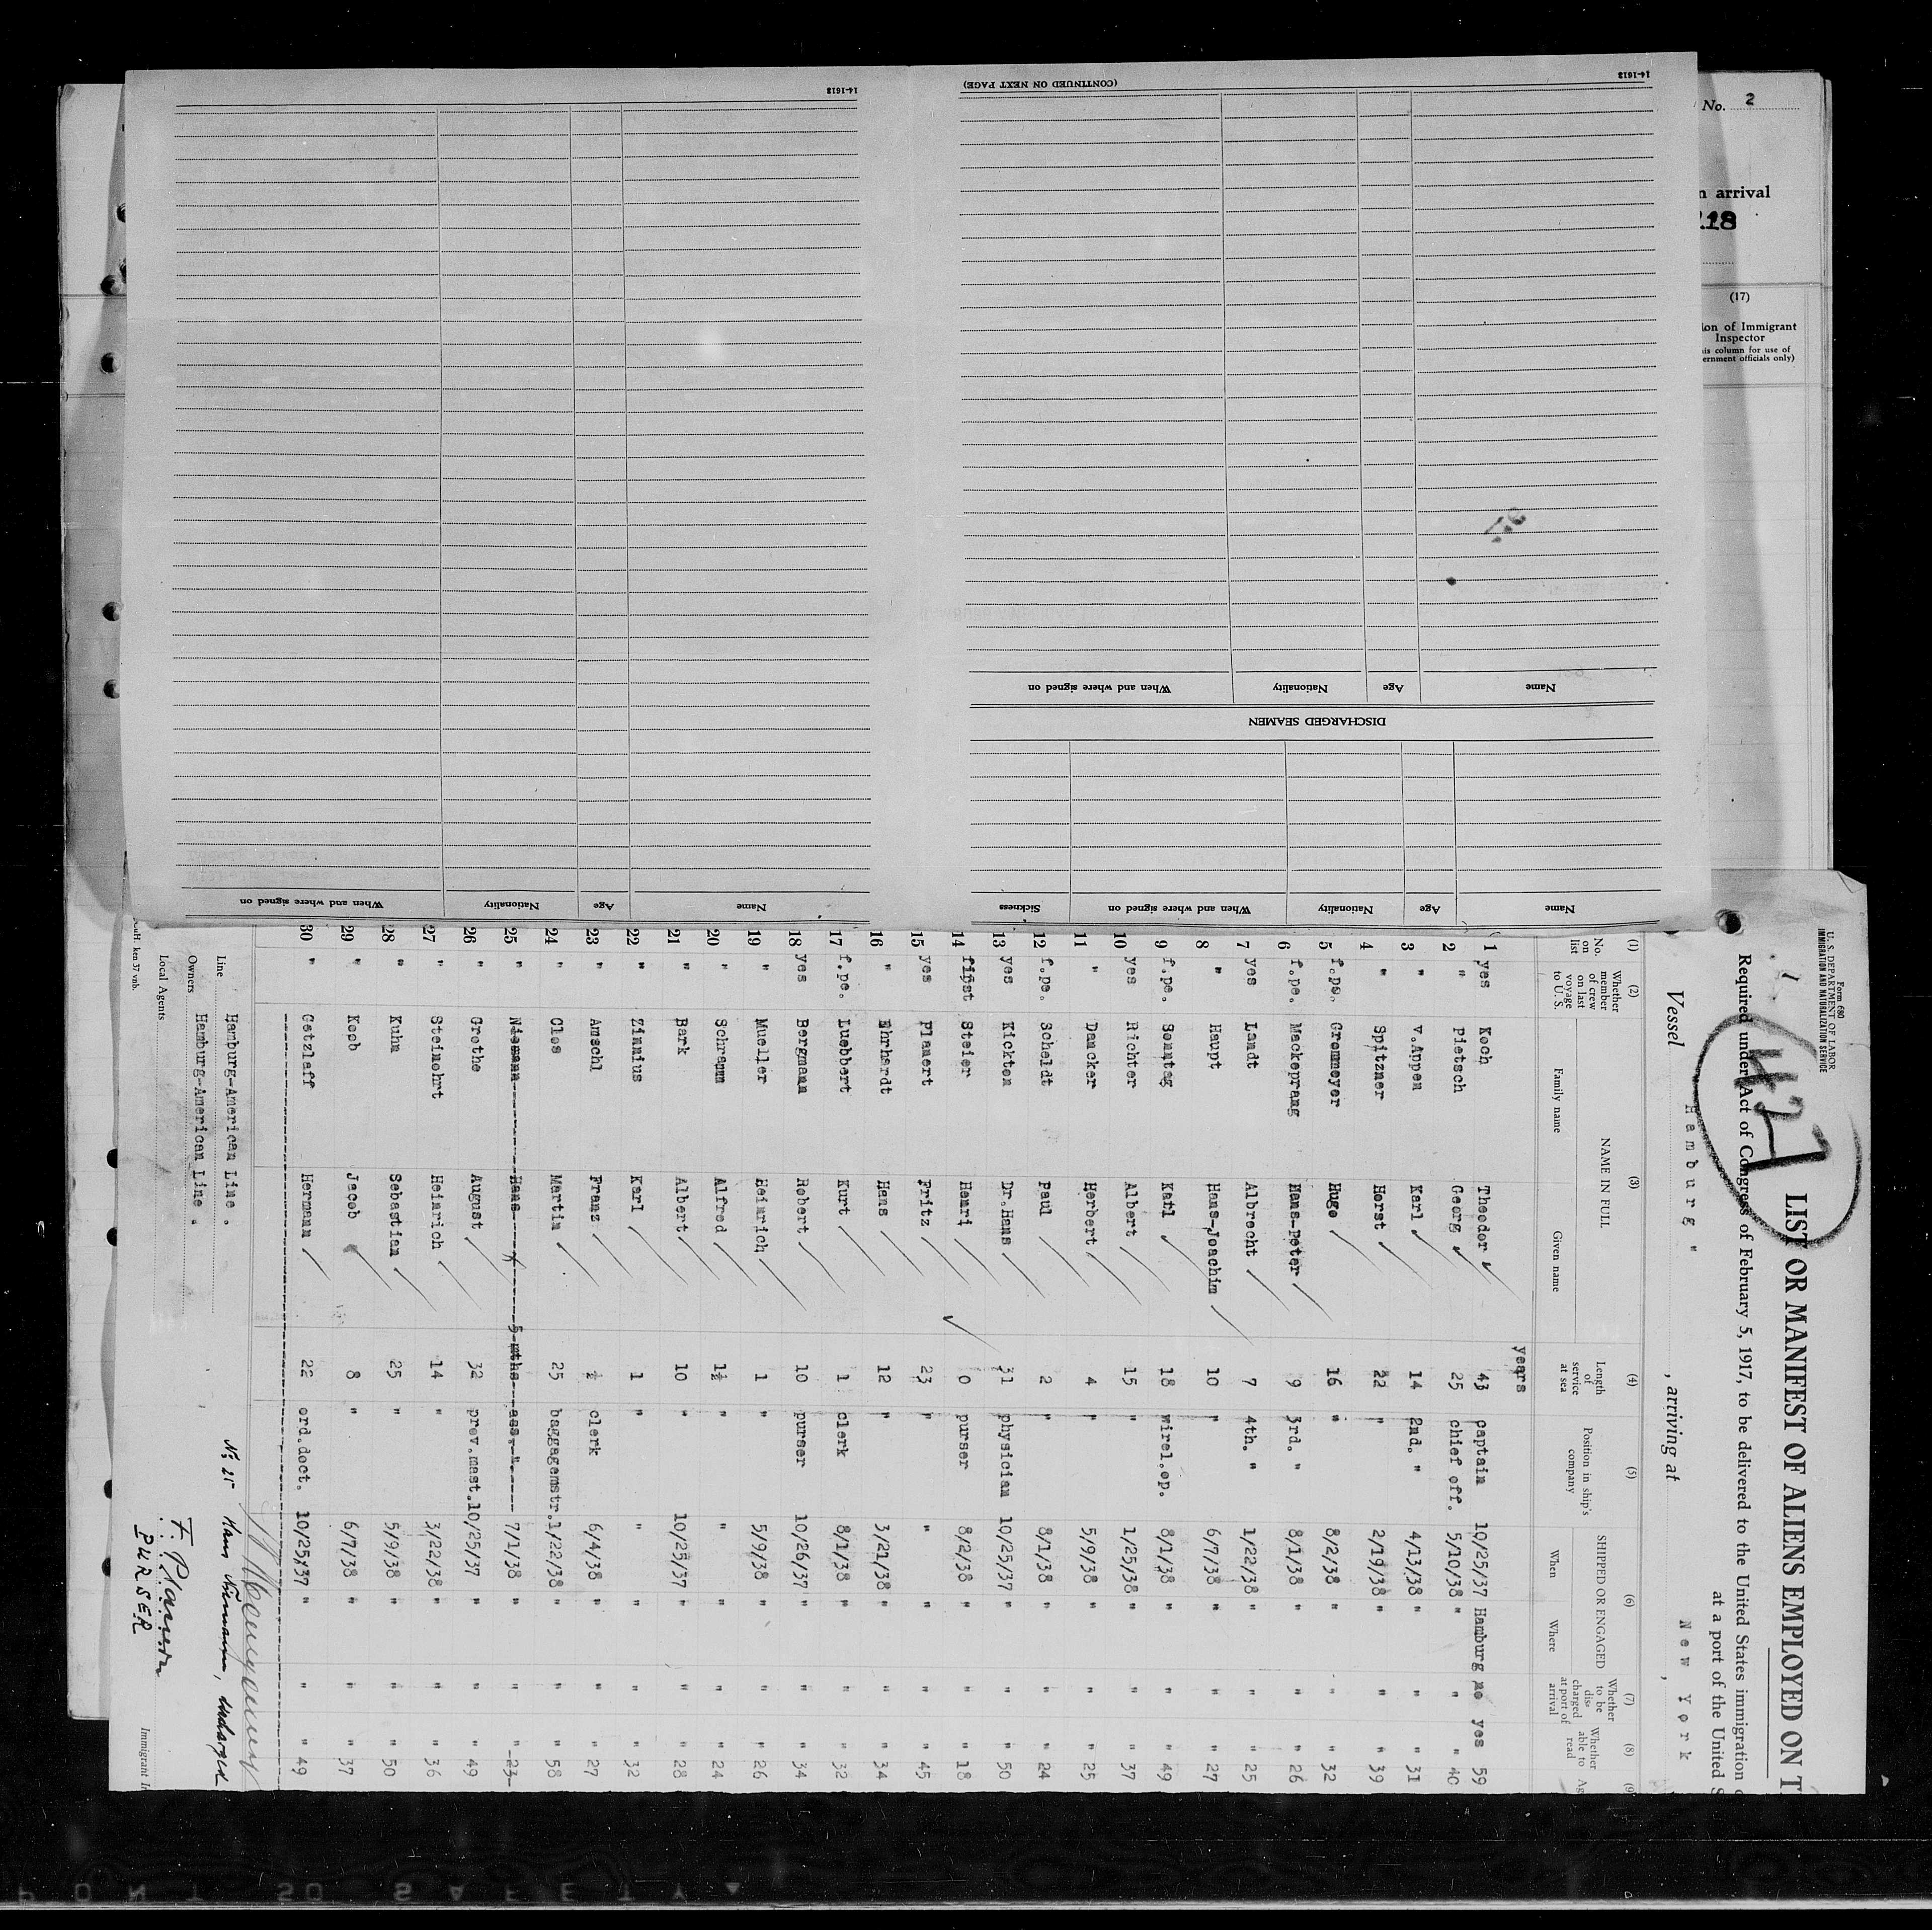 14-1613
(CONTINUED ON NEXT PAGE)
14-1613
DISCHARGED SEAMEN
Name Age Nationality When and where signed on
Name Age Nationality When and where signed on Sickness
Name Age Nationality When and where signed on
No. 2
arrival
118
(17)
ion of Immigrant
Inspector
is column for use of
ernment officials only)
Form 680
U. S. DEPARTMENT OF LABOR
IMMIGRATION AND NATURALIZATION SERVICE
421
LIST OR MANIFEST OF ALIENS EMPLOYED ON T
Required under Act of Congress of February 5, 1917, to be delivered to the United States immigration
at a port of the United S
Vessel Hamburg " , arriving at New York ,
(1) (2) (3) (4) (5) (6) (7) (8) (9
No. on list
Whether member of crew on last voyage to U. S.
NAME IN FULL
Family name Given name
Length of service at sea
Position in ship's company
SHIPPED OR ENGAGED
When Where
Whether to be dis- charged at port of arrival
Whether able to read
Ag
years
1 yes Koch Theodor 43 captain 10/25/37 Hamburg no yes 59
2 " Pietsch Georg 25 chief off. 5/10/38 " " " 40
3 " v.Appen Karl 14 2nd. " 4/13/38 " " " 31
4 " Spitzner Horst 22 " 2/19/38 " " " 39
5 f.pe. Gronmeyer Hugo 16 " 8/2/38 " " " 32
6 f.pe. Mackeprang Hans-Peter 9 3rd. " 8/1/38 " " " 26
7 yes Landt Albrecht 7 4th. " 1/22/38 " " " 25
8 " Haupt Hans-Joachim 10 " 6/7/38 " " " 27
9 f.pe. Sonntag Karl 18 wirel.op. 8/1/38 " " " 49
10 yes Richter Albert 15 " 1/25/38 " " " 37
11 " Dancker Herbert 4 " 5/9/38 " " " 25
12 f.pe. Scheldt Paul 2 " 8/1/38 " " " 24
13 yes Kickton Dr.Hans 31 physician 10/25/37 " " " 50
14 first Steier Henri 0 purser 8/2/38 " " " 18
15 yes Planert Fritz 23 " " " " " 45
16 " Ehrhardt Hans 12 " 3/21/38 " " " 34
17 f.pe. Luebbert Kurt 1 clerk 8/1/38 " " " 32
18 yes Bergmann Robert 10 purser 10/26/37 " " " 34
19 " Mueller Heinrich 1 " 5/9/38 " " " 26
20 " Schramm Alfred 1½ " " " " " 24
21 " Bark Albert 10 " 10/25/37 " " " 28
22 " Zinnius Karl 1 " " " " " 32
23 " Amschl Franz ½ clerk 6/4/38 " " " 27
24 " Clos Martin 25 baggagemstr. 1/22/38 " " " 58
25 " Niemann Hans 5 mths ass. " 7/1/38 " " " 23
26 " Grothe August 32 prov.mast. 10/25/37 " " " 49
27 " Steinohrt Heinrich 14 " 3/22/38 " " " 36
28 " Kuhn Sebastian 25 " 5/9/38 " " " 50
29 " Koob Jacob 8 " 6/7/38 " " " 37
30 " Getzlaff Hermann 22 ord.doct. 10/25/37 " " " 49
Line Hamburg-American Line .
Owners Hamburg-American Line .
Local Agents
No 25 Hans Niemann, discharged
PURSER
Immigrant In